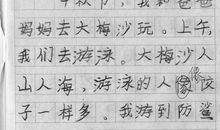 中秋节，我和爸爸
妈妈去大梅沙玩。上午，
我们去游泳。大梅沙人
山人海，游泳的人像饺
子一样多。我游到防鲨